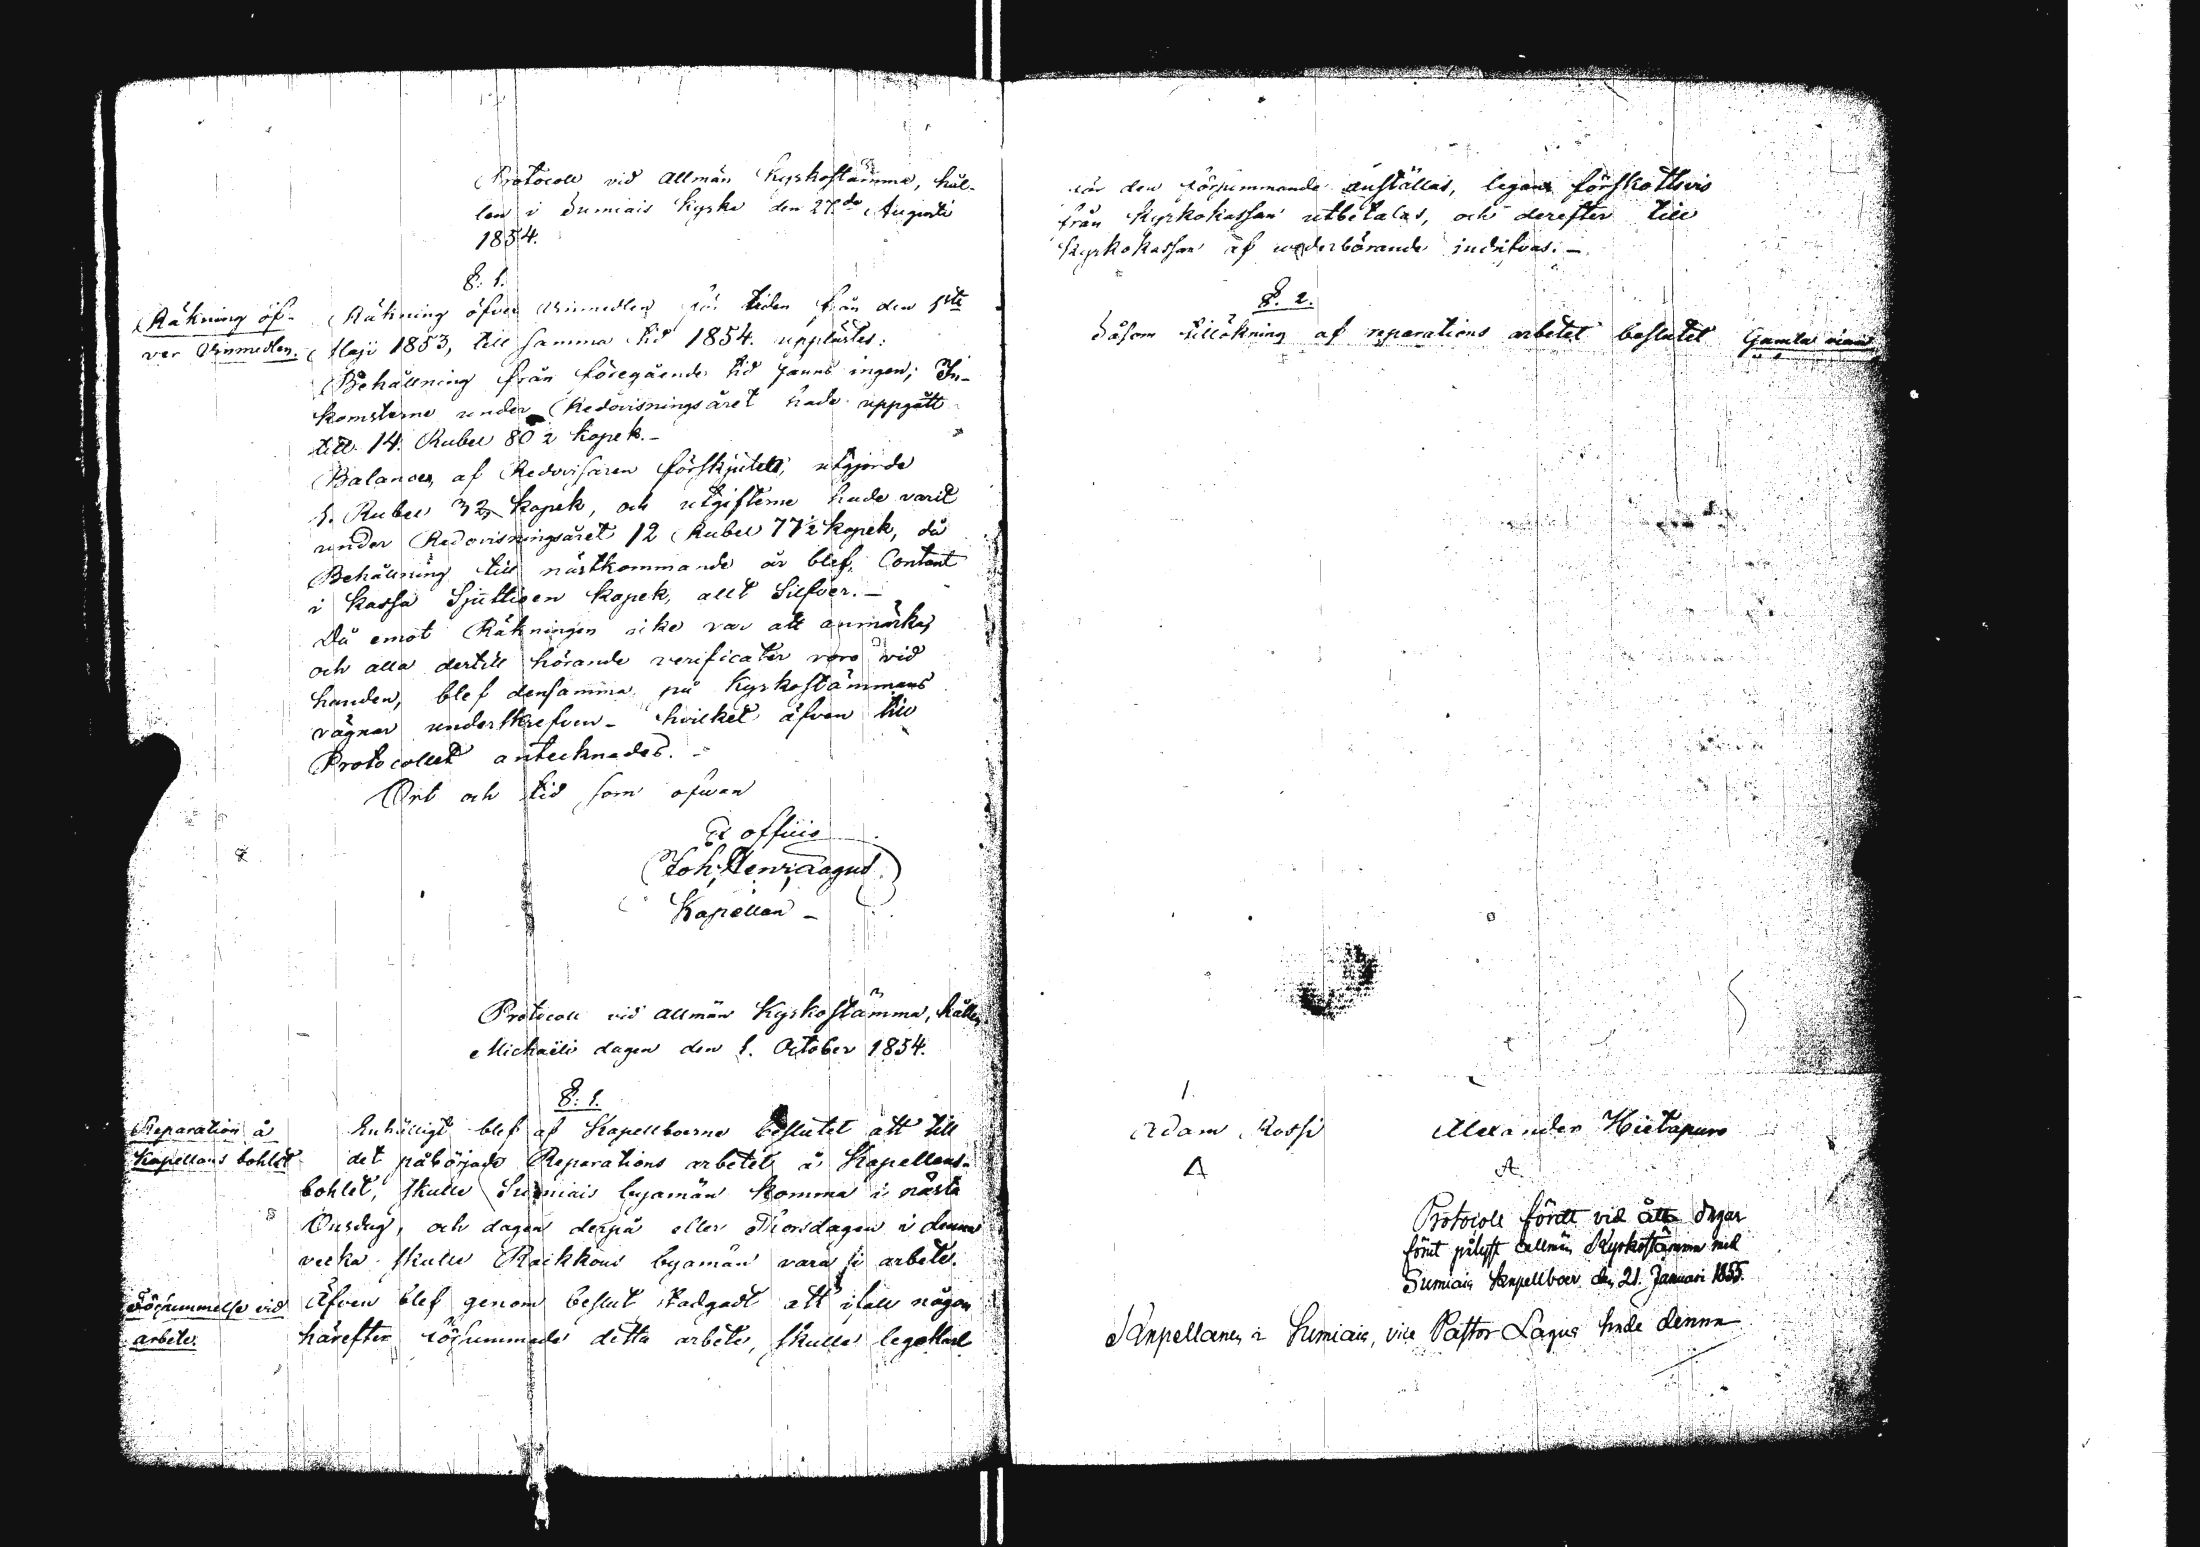 Protocoll vid allmän Kyrkostämma, hål-
len i Sumiais Kyrka den 27de Augusti
1854.
§. 1.
Räkning öf-
ver Vinmedlen.
Räkning öfver Vinmedlen för tiden från den 1ste
Maji 1853, till samma tid 1854. upplästes:
Behållning från föregående tid fanns ingen; In-
komsterne under Redovisningsåret hade uppgått
till 14. Rubel 80 2 Kopek.-
Balancen, af Redovisaren förskjuten, utgjorde
1. Rubel 32 Kopek, och utgifterne hade varit
under Redovisningsåret 12 Rubel 77½ Kopek, då
Behållning till nästkommande år blef, Contant
i Kassa Sjuttioen Kopek, allt Silfver.-
Då emot Räkningen icke var att anmärka,
och alla dertill hörande verificater voro vid
handen, blef densamma på Kyrkostämmans
vägnar underskrefven - hvilket äfven till
Protocollet antecknades.-
Ort och tid som ofvan
Ex officio
Joh. Henr. Lagus
Kapellan -
Protocoll vid allmän Kyrkostämma, hållen
Michaëli dagen den 1. October 1854.
§. 1.
Reparation å
Kapellans bohlet
Enhälligt blef af Kapellboerne beslutet att till
det påbörjade Reparations arbetet å Kapellans-
bohlet, skulle Sumiais byamän komma i nästa
Onsdag, och dagen derpå eller Thorsdagen i denna
vecka skulle Raikkous byamän vara i arbete.
Försummelse vid
arbete.
Äfven blef genom beslut stadgadt att ifall någon
härefter försummade detta arbete, skulle legokarl
för den försummande anställas, legan förskottsvis
från Kyrkokassan utbetalas, och derefter till
Kyrkokassan af wederbörande indrifvas.-
§. 2.
Såsom tillökning af reparations arbetet beslutet Gamla
1.
Adam Rossi
Alexander Hietapuro
A
Protocoll fördt vid åtta dagar
förut pålyst allmän Kyrkostämma med
Sumiais Kapellboer den 21. Januari 1855.
Kapellanen i Sumiais, vice Pastor Lagus hade denna